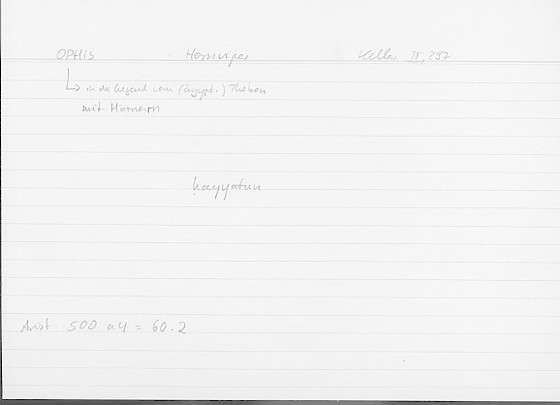 OPHIS Hornviper Keller II, 297
in der Gegend vom (ägypt.) Theben
mit Hörnern
ḥayyatun
Arist. 500 a4 = 60.2